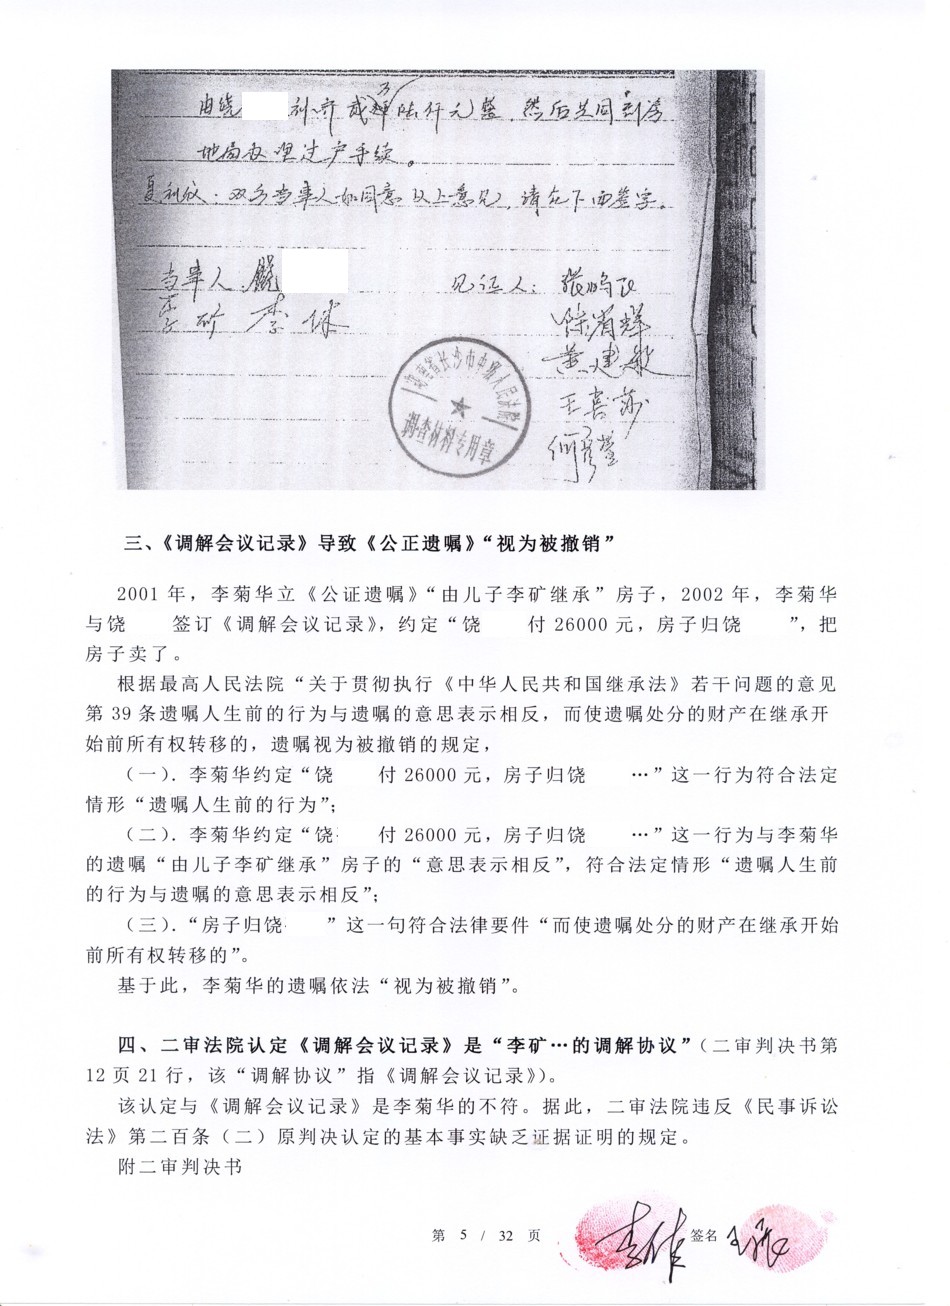 由饶 补齐贰万陆仟元整，然后共同到房
地局办理过户手续。
复利仪：双方当事人如同意以上意见，请在下面签字。
当事人：饶
李矿 李球
见证人：
湖南省长沙市中级人民法院
调查材料专用章
三、《调解会议记录》导致《公正遗嘱》“视为被撤销”
2001 年，李菊华立《公证遗嘱》“由儿子李矿继承”房子，2002 年，李菊华
与饶 签订《调解会议记录》，约定“饶 付 26000 元，房子归饶 ”，把
房子卖了。
根据最高人民法院“关于贯彻执行《中华人民共和国继承法》若干问题的意见
第 39 条遗嘱人生前的行为与遗嘱的意思表示相反，而使遗嘱处分的财产在继承开
始前所有权转移的，遗嘱视为被撤销的规定，
（一）．李菊华约定“饶 付 26000 元，房子归饶 …”这一行为符合法定
情形“遗嘱人生前的行为”；
（二）．李菊华约定“饶 付 26000 元，房子归饶 …”这一行为与李菊华
的遗嘱“由儿子李矿继承”房子的“意思表示相反”，符合法定情形“遗嘱人生前
的行为与遗嘱的意思表示相反”；
（三）．“房子归饶 ”这一句符合法律要件“而使遗嘱处分的财产在继承开始
前所有权转移的”。
基于此，李菊华的遗嘱依法“视为被撤销”。
四、二审法院认定《调解会议记录》是“李矿…的调解协议”（二审判决书第
12 页 21 行，该“调解协议”指《调解会议记录》）。
该认定与《调解会议记录》是李菊华的不符。据此，二审法院违反《民事诉讼
法》第二百条（二）原判决认定的基本事实缺乏证据证明的规定。
附二审判决书
第 5 / 32 页
签名